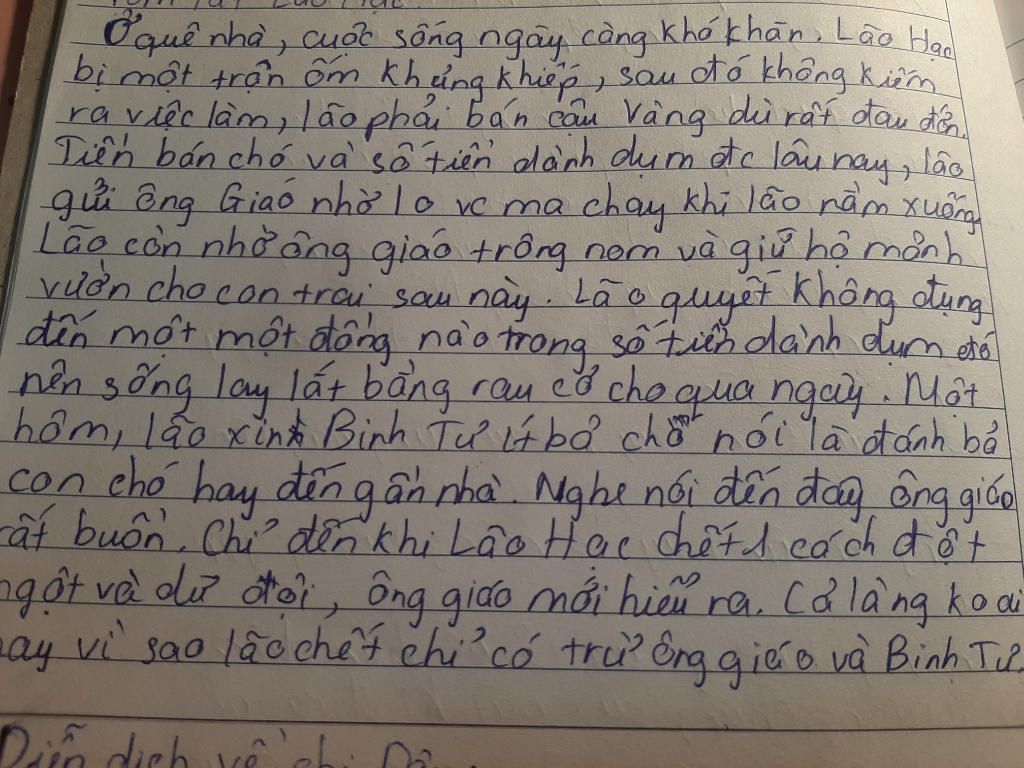 Tóm tắt Lão Hạc.
Ở quê nhà, cuộc sống ngày càng khó khăn. Lão Hạc
bị một trận ốm khủng khiếp, sau đó không kiếm
ra việc làm, lão phải bán cậu Vàng dù rất đau đớn.
Tiền bán chó và số tiền dành dụm đc lâu nay, lão
gửi ông Giáo nhờ lo vc ma chay khi lão nằm xuống
Lão còn nhờ ông giáo trông nom và giữ hộ mảnh
vườn cho con trai sau này. Lão quyết không đụng
đến một một đồng nào trong số tiền dành dụm đó
nên sống lay lắt bằng rau cỏ cho qua ngày. Một
hôm, lão xin Binh Tư ít bả chó nói là đánh bả
con chó hay đến gần nhà. Nghe nói đến đây ông giáo
rất buồn. Chỉ đến khi Lão Hạc chết 1 cách đột
ngột và dữ dội, ông giáo mới hiểu ra. Cả làng ko ai
hay vì sao lão chết chỉ có trừ ông giáo và Binh Tư.
Diễn dịch về chị Dậu